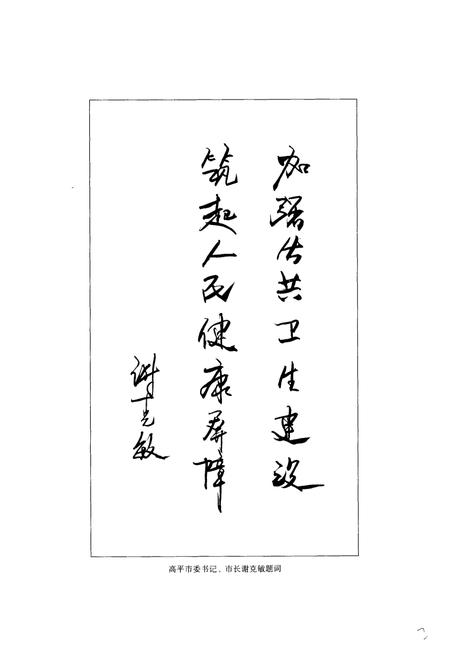 加强公共卫生建设
筑起人民健康屏障
谢克敏
高平市委书记、市长谢克敏题词